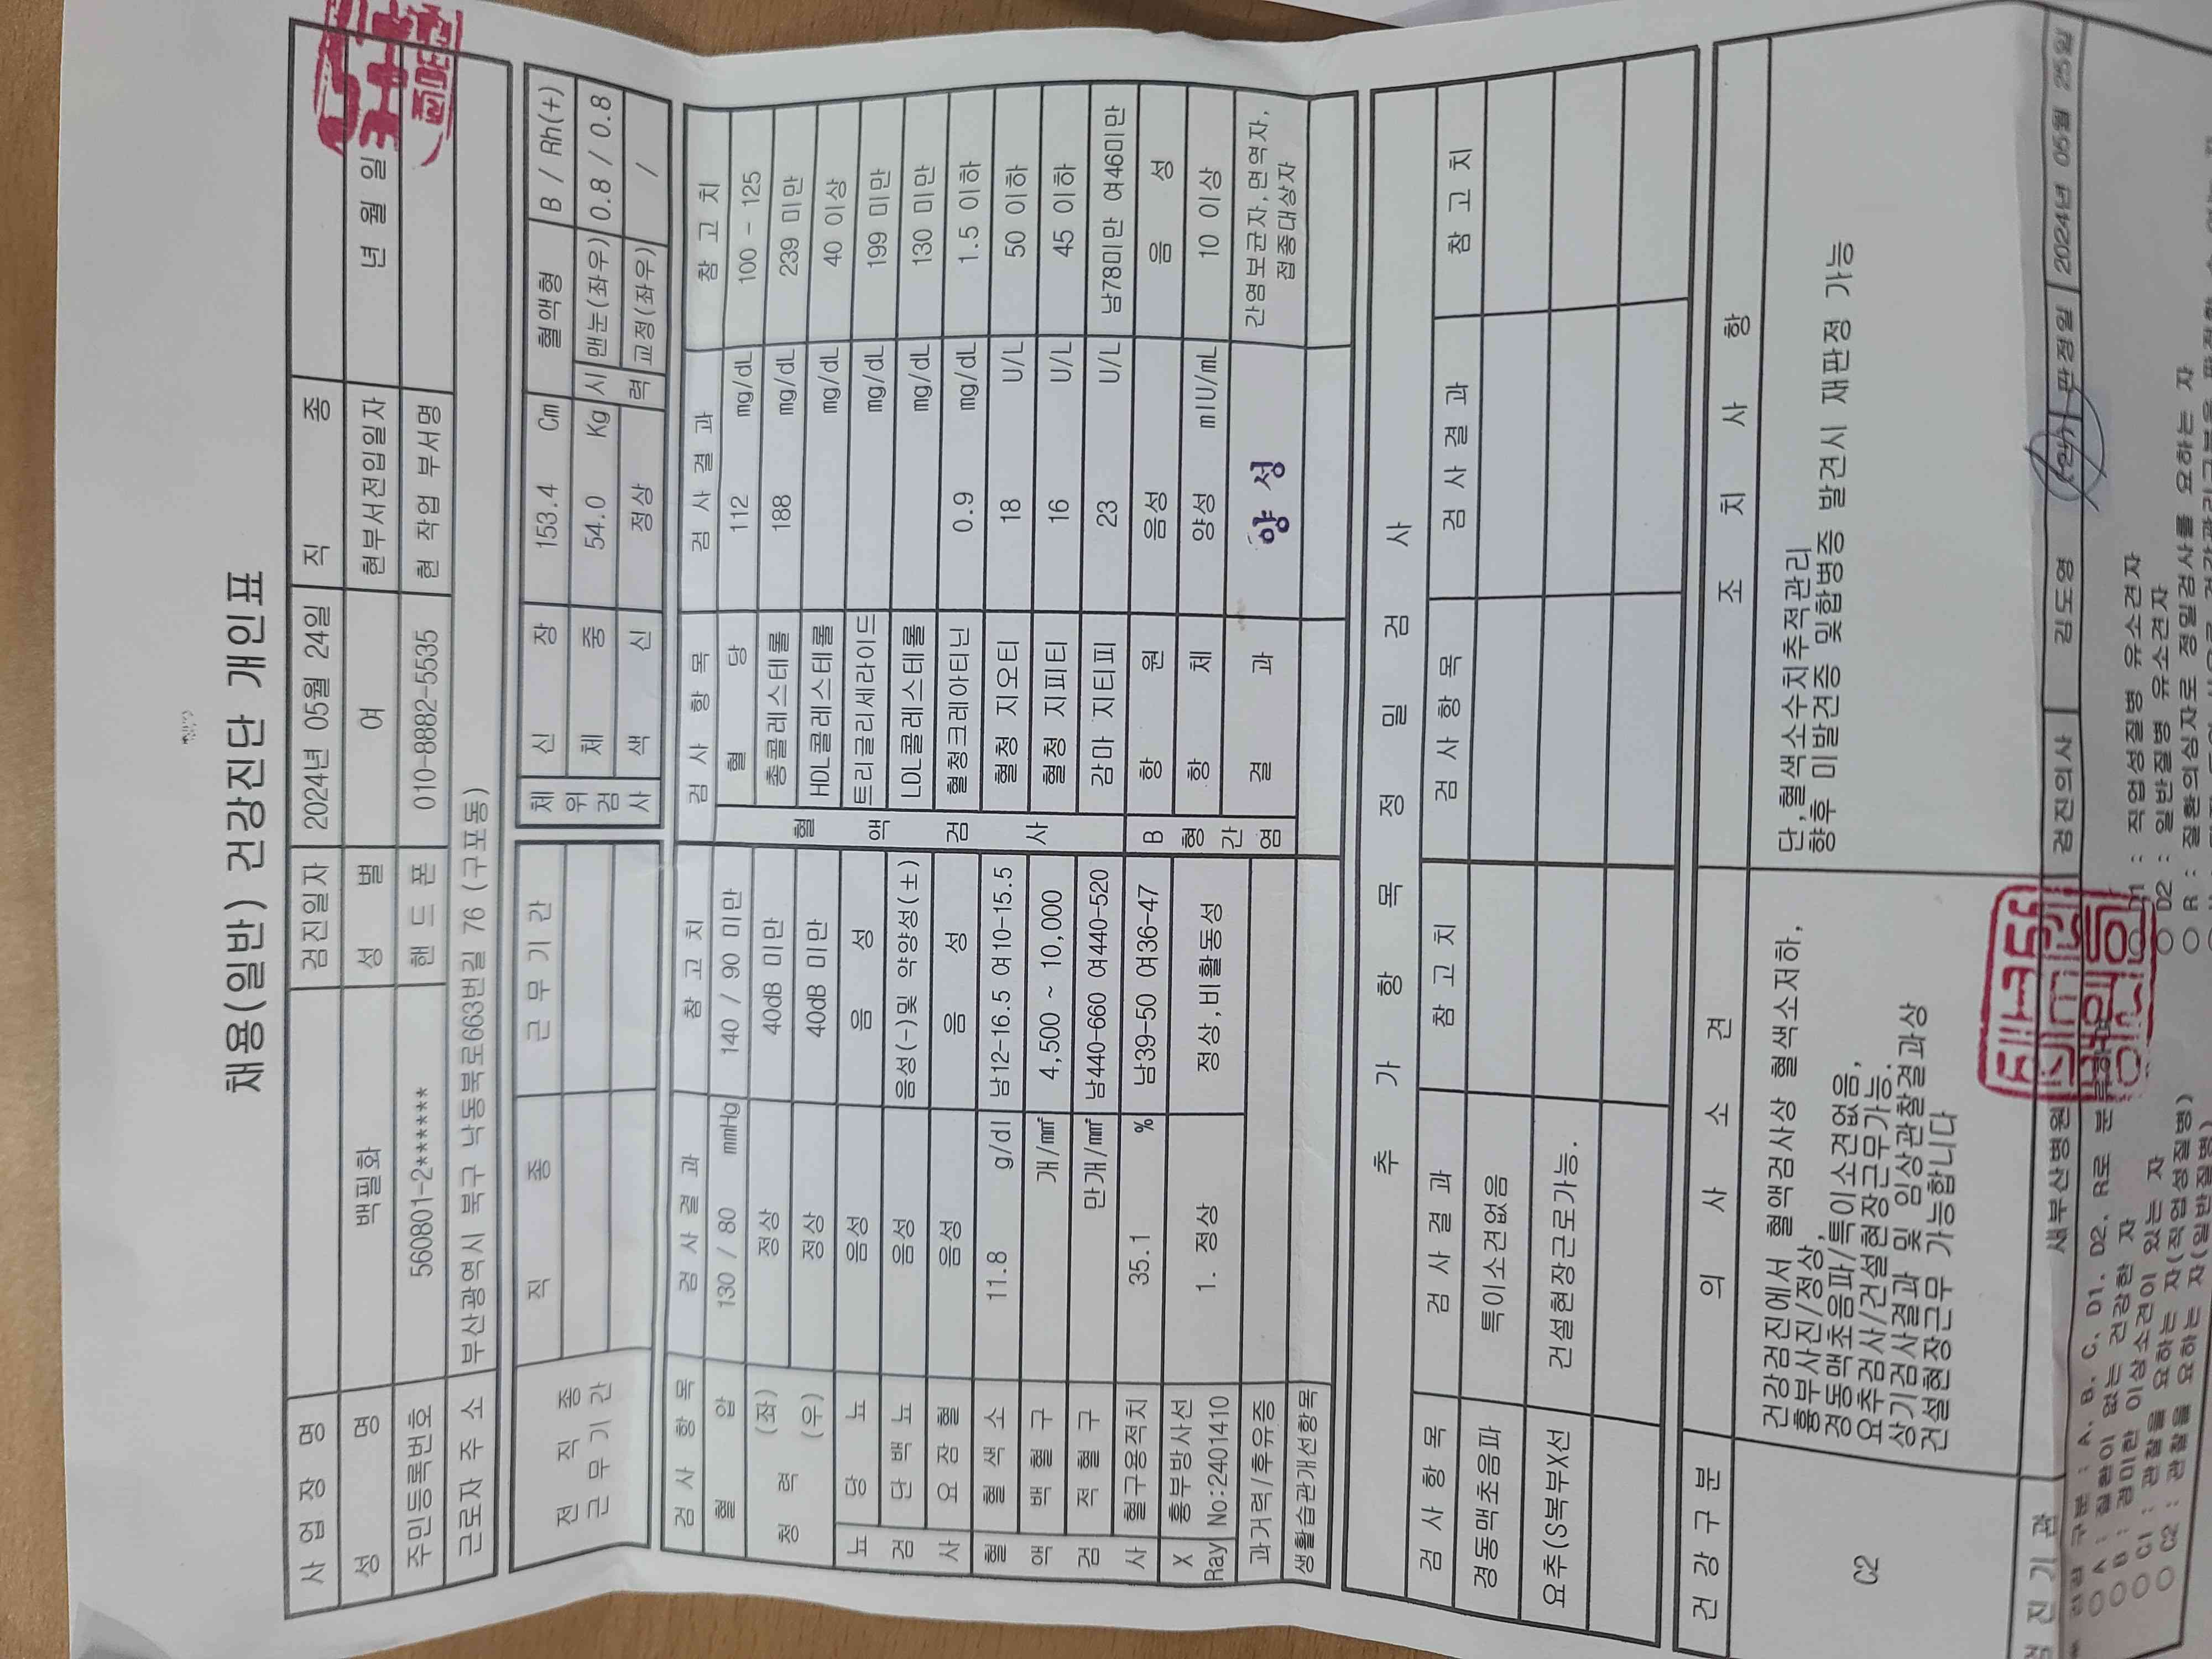 채용(일반) 건강진단 개인표
사 업 장 명 검진일자 2024년 05월 24일 직 종
성 명 백필화 성 별 여 현부서전입일자 년 월 일
주민등록번호 560801-2****** 핸 드 폰 010-8882-5535 현 작업 부서명
근로자 주 소 부산광역시 북구 낙동북로663번길 76 (구포동)
전 직 종 근 무 기 간 직 종 근 무 기 간
체 위 검 사 신 장 153.4 Cm 혈액형 B / Rh(+)
체 중 54.0 Kg 시 력 맨눈(좌우) 0.8 / 0.8
색 신 정상 교정(좌우) /
검 사 항 목 검 사 결 과 참 고 치 검 사 항 목 검 사 결 과 참 고 치
혈 압 130 / 80 mmHg 140 / 90 미만 혈 액 검 사 혈 당 112 mg/dL 100 - 125
청 력 (좌) 정상 40dB 미만 총콜레스테롤 188 mg/dL 239 미만
(우) 정상 40dB 미만 HDL콜레스테롤 mg/dL 40 이상
뇨 검 사 당 뇨 음성 음 성 트리글리세라이드 mg/dL 199 미만
단 백 뇨 음성 음성(-)및 약양성(±) LDL콜레스테롤 mg/dL 130 미만
요 잠 혈 음성 음 성 혈청크레아티닌 0.9 mg/dL 1.5 이하
혈 액 검 사 혈 색 소 11.8 g/dl 남12-16.5 여10-15.5 혈청 지오티 18 U/L 50 이하
백 혈 구 개/㎣ 4,500 ~ 10,000 혈청 지피티 16 U/L 45 이하
적 혈 구 만개/㎣ 남440-660 여440-520 감마 지티피 23 U/L 남78미만 여46미만
혈구용적치 35.1 % 남39-50 여36-47 B 형 간 염 항 원 음성 음 성
X Ray 흉부방사선 No:2401410 1. 정상 정상,비활동성 항 체 양성 mIU/mL 10 이상
과거력/후유증 결 과 양 성 간염보균자,면역자, 접종대상자
생활습관개선항목
추 가 항 목 정 밀 검 사
검 사 항 목 검 사 결 과 참 고 치 검 사 항 목 검 사 결 과 참 고 치
경동맥초음파 특이소견없음
요추(S복부X선 건설현장근로가능.
건 강 구 분 의 사 소 견 조 치 사 항
C2
건강검진에서 혈액검사상 혈색소저하,
흉부사진/정상,
경동맥초음파/특이소견없음,
요추검사/건설현장근무가능.
상기검사결과 및 임상관찰결과상
건설현장근무 가능합니다
단,혈색소수치추적관리
향후 미발견증 및합병증 발견시 재판정 가능
검 진 기 관 새부산병원 검진의사 김도영 판정일 2024년 05월 25일
A, B, C, D1, D2, R로 분류하며
○ A : 질환이 없는 건강한 자
○ B : 경미한 이상소견이 있는 자
○ C1 : 관찰을 요하는 자(직업성질병)
○ C2 : 관찰을 요하는 자(일반질병)
○ D1 : 직업성질병 유소견자
○ D2 : 일반질병 유소견자
○ R : 질환의심자로 정밀검사를 요하는 자